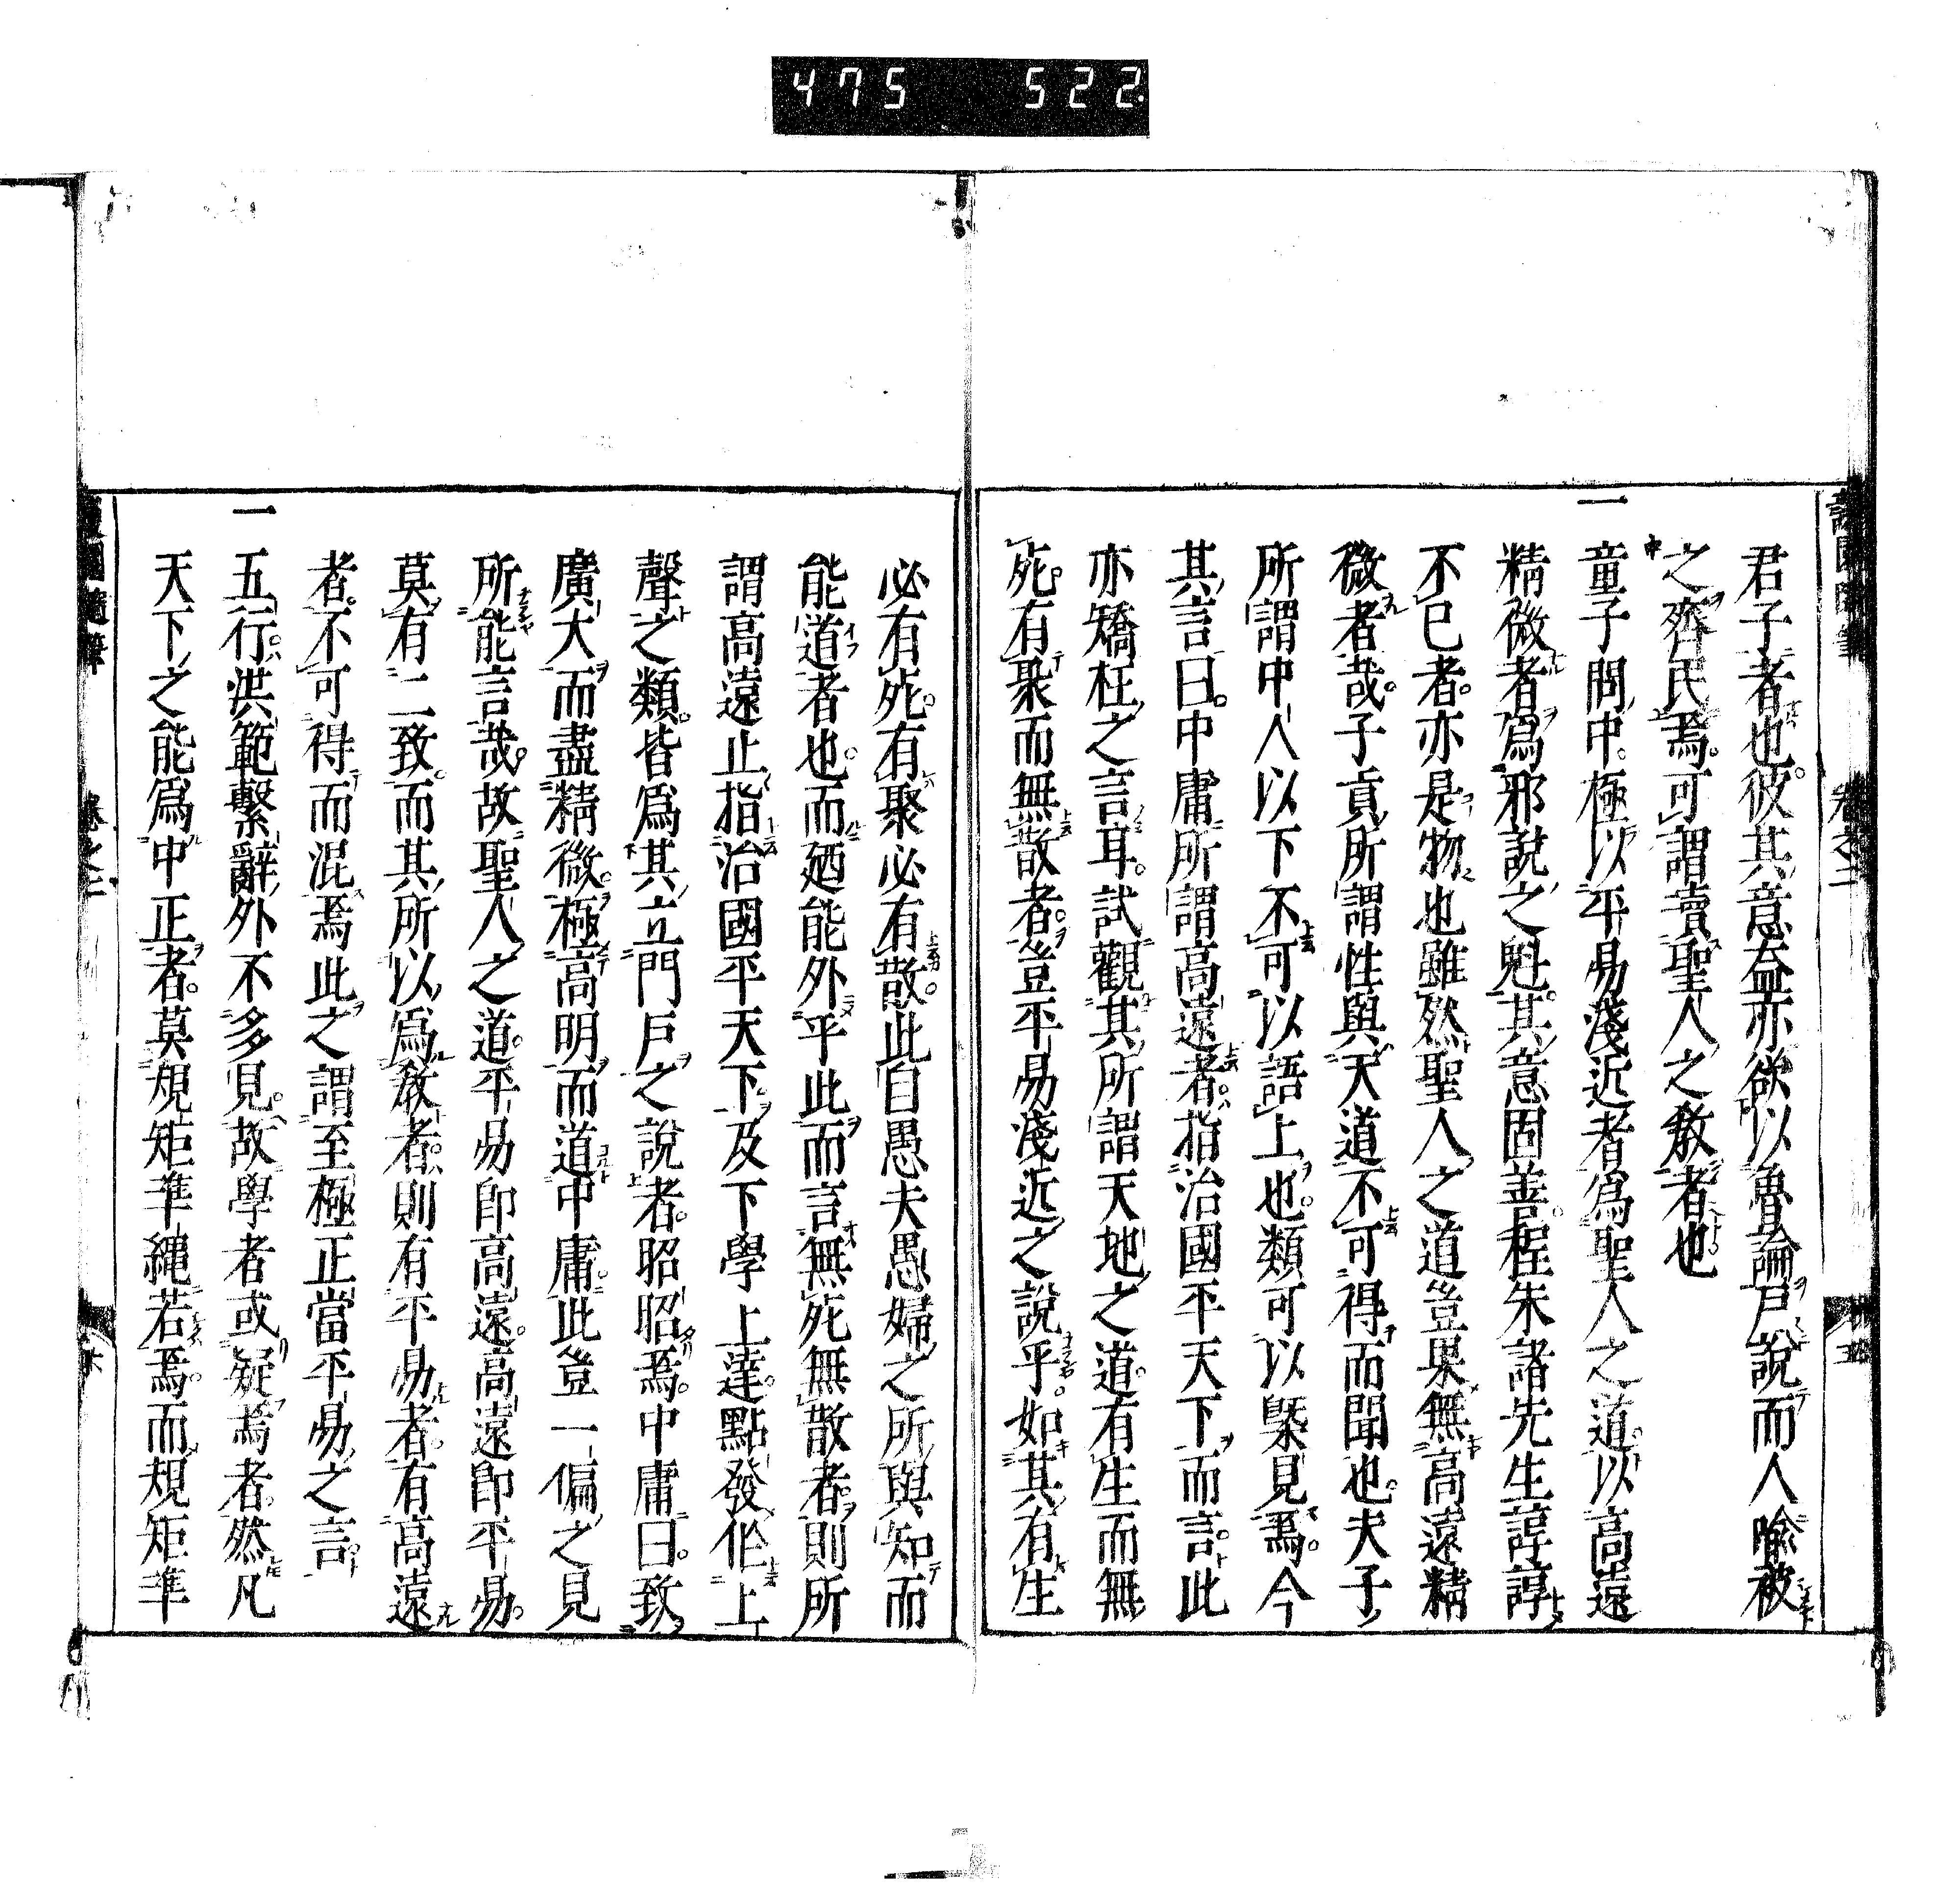 475 522
卷之二
君子者也。彼其意益亦欲以魯論戶說而人喩被
之齊民焉。可謂賣聖人之教者也
一童子問中。極以平易淺近者爲聖人之道。以高遠
精微者爲邪說之魁。其意固善。程朱諸先生諄諄
不已者。亦是物也雖然聖人之道豈果無高遠精
微者哉。子貢所謂性與天道不可得而聞也。夫子
所謂中人以下不可以語上也。類可以槩見焉。今
其言曰。中庸所謂高遠者。指治國平天下而言。此
亦矯枉之言耳。試觀其所謂天地之道。有生而無
死。有聚而無散者。豈平易淺近之說乎。如其有生
必有死。有聚必有散。此自愚夫愚婦之所與知而
能道者也。而廼能外乎此而言無死無散者。則所
謂高遠止指治國平天下。及下學上達。點發化上
聲之類。皆爲其立門戶之說者。昭昭焉。中庸曰。致
廣大而盡精微。極高明而道中庸。此豈一偏之見
所能言哉。故聖人之道。平易即高遠。高遠即平易。
莫有二致。而其所以爲教者。則有平易者。有高遠
者。不可得而混焉此之謂至極正當平易之言
一五行。洪範繫辭外不多見。故學者或疑焉者。然凡
天下之能爲中正者。莫規矩準繩若焉。而規矩準